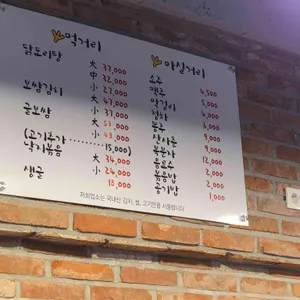 먹거리
닭도리탕 大 37,000
中 32,000
小 27,000
보쌈김치 大 47,000
小 37,000
굴보쌈 大 53,000
小 43,000
(고기추가 ········· 15,000)
낙지볶음 大 34,000
小 26,000
생굴 18,000
마실거리
소주 4,500
맥주 5,000
막걸리
청하
동동주
산사춘
복분자 12,000
음료수 2,000
볶음밥 2,000
공기밥 1,000
저희업소는 국내산 김치, 쌀, 고기만을 사용합니다